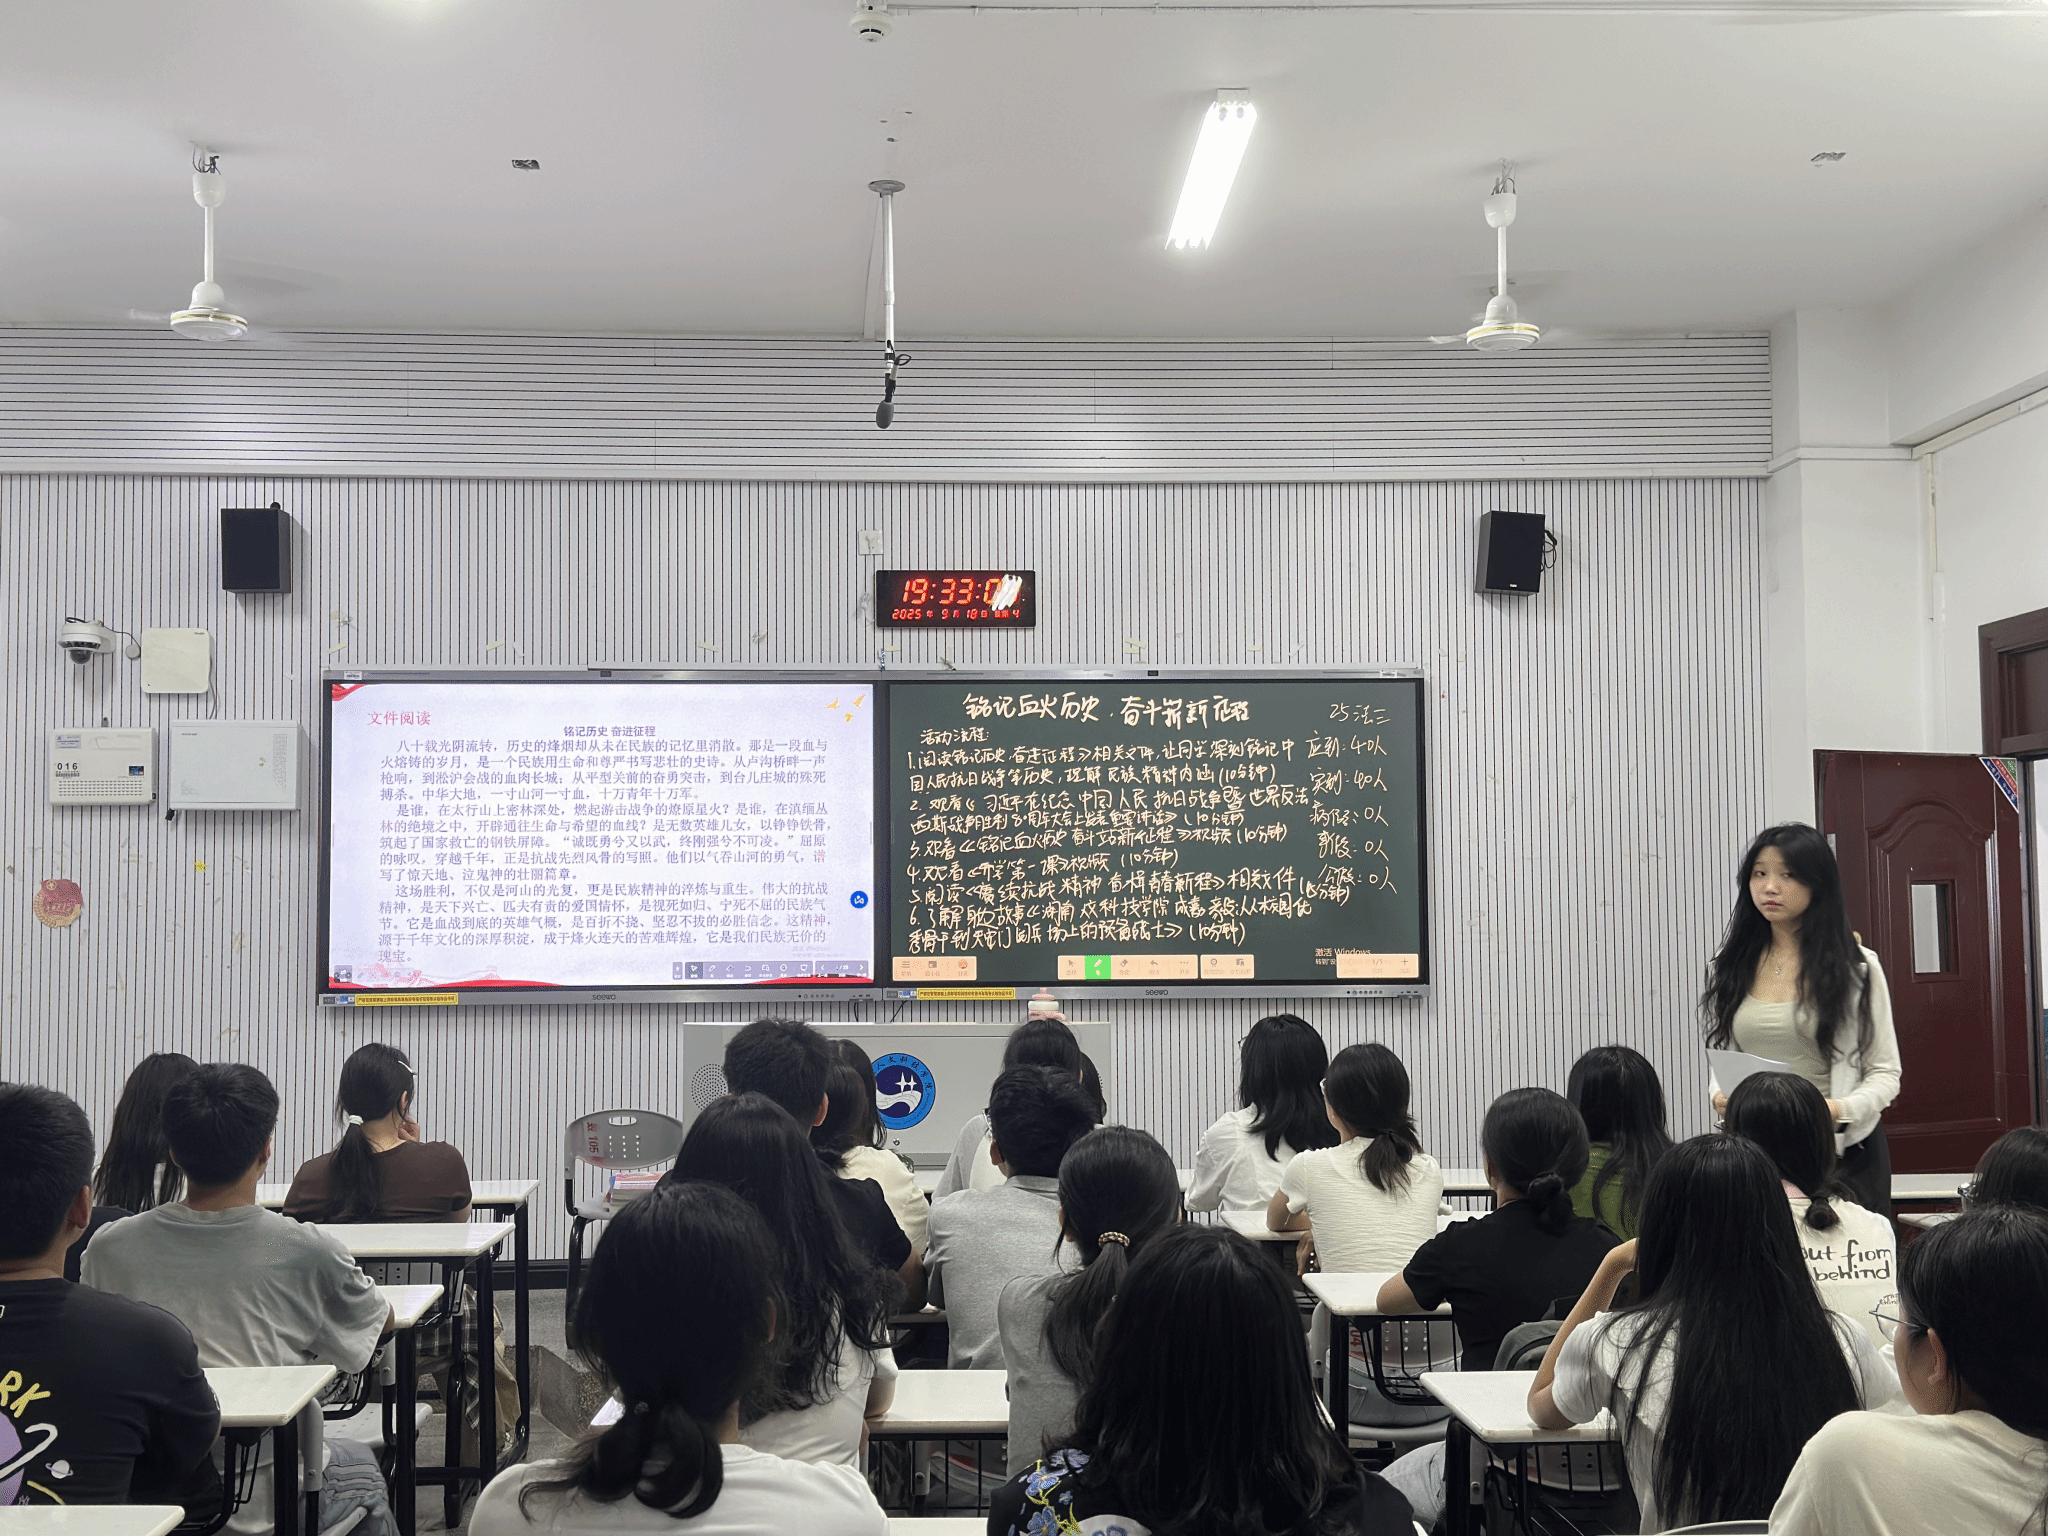 19:33:0
2025年9月18日 星期4
文件阅读
铭记历史 奋进征程
八十载光阴流转，历史的烽烟却从未在民族的记忆里消散。那是一段血与
火熔铸的岁月，是一个民族用生命和尊严书写悲壮的史诗。从卢沟桥畔一声
枪响，到淞沪会战的血肉长城；从平型关前的奋勇突击，到台儿庄城的殊死
搏杀。中华大地，一寸山河一寸血，十万青年十万军。
是谁，在太行山上密林深处，燃起游击战争的燎原星火？是谁，在滇缅丛
林的绝境之中，开辟通往生命与希望的血线？是无数英雄儿女，以铮铮铁骨，
筑起了国家救亡的钢铁屏障。“诚既勇兮又以武，终刚强兮不可凌。”屈原
的咏叹，穿越千年，正是抗战先烈风骨的写照。他们以气吞山河的勇气，谱
写了惊天地、泣鬼神的壮丽篇章。
这场胜利，不仅是河山的光复，更是民族精神的淬炼与重生。伟大的抗战
精神，是天下兴亡、匹夫有责的爱国情怀，是视死如归、宁死不屈的民族气
节。它是血战到底的英雄气概，是百折不挠、坚忍不拔的必胜信念。这精神，
源于千年文化的深厚积淀，成于烽火连天的苦难辉煌，它是我们民族无价的
瑰宝。
铭记血火历史，奋斗崭新征程
25法三
活动流程：
1.阅读铭记历史，奋进征程》相关文件，让同学深刻铭记中
国人民抗日战争历史，理解民族精神内涵(10分钟)
2.观看《习近平在纪念中国人民抗日战争暨世界反法
西斯战争胜利80周年大会上发表重要讲话》(10分钟)
3.观看《铭记血火历史 奋斗崭新征程》视频(10分钟)
4.观看《开学第一课》视频(10分钟)
5.阅读《赓续抗战精神 青春新征程》相关文件(5分钟)
6.了解身边故事《湖南 科技学院成嘉毅：从校园优
秀骨干到天安门阅兵场上的预备战士》(10分钟)
应到：40人
实到：40人
病假：0人
事假：0人
公假：0人
激活 Windows
seewo
seewo
016
105
04
RK
out from
behind